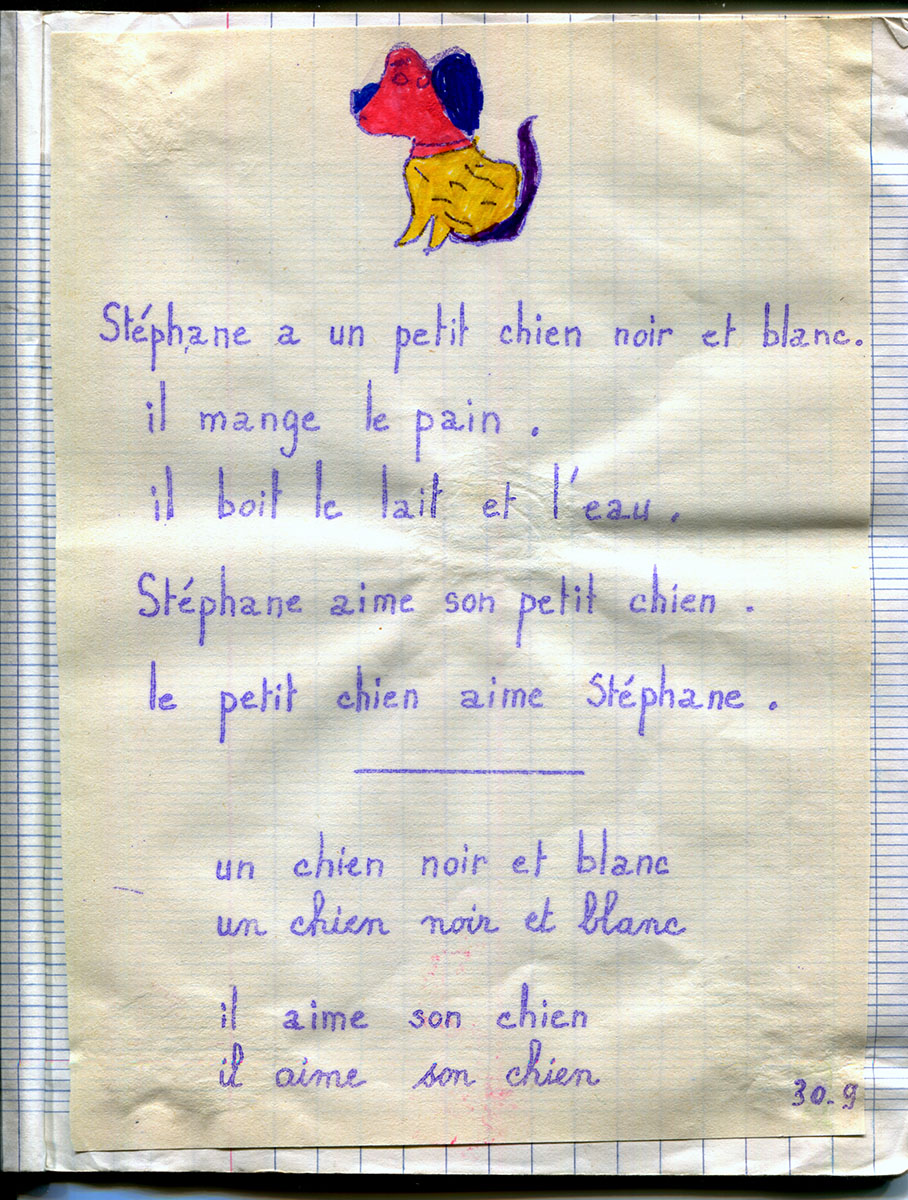 Stéphane a un petit chien noir et blanc.
il mange le pain .
il boit le lait et l'eau .
Stéphane aime son petit chien .
le petit chien aime Stéphane .
un chien noir et blanc
un chien noir et blanc
il aime son chien
il aime son chien
30-9